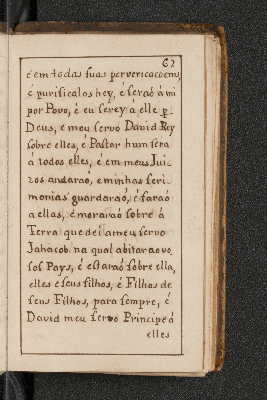 67
é em todas suas pervericacoens,
é purificalos hey, é seraõ á mi
por Povo, é eu serey á elle p.
Deus, e meu servo David Rey
sobre elles, é Pastor hum será
á todos elles, é em meus Jui-
zos andaraõ, e minhas seri-
monias guardaraõ, é faraõ
a ellas, é moraraõ sobre á
Terra que dei a meu servo
Jahacob na qual abitaraõ vo
sos Pays, é estaraõ sobre ella,
elles e seus filhos, é Filhos de
seus Filhos, para sempre, é
David meu servo Principe á
elles